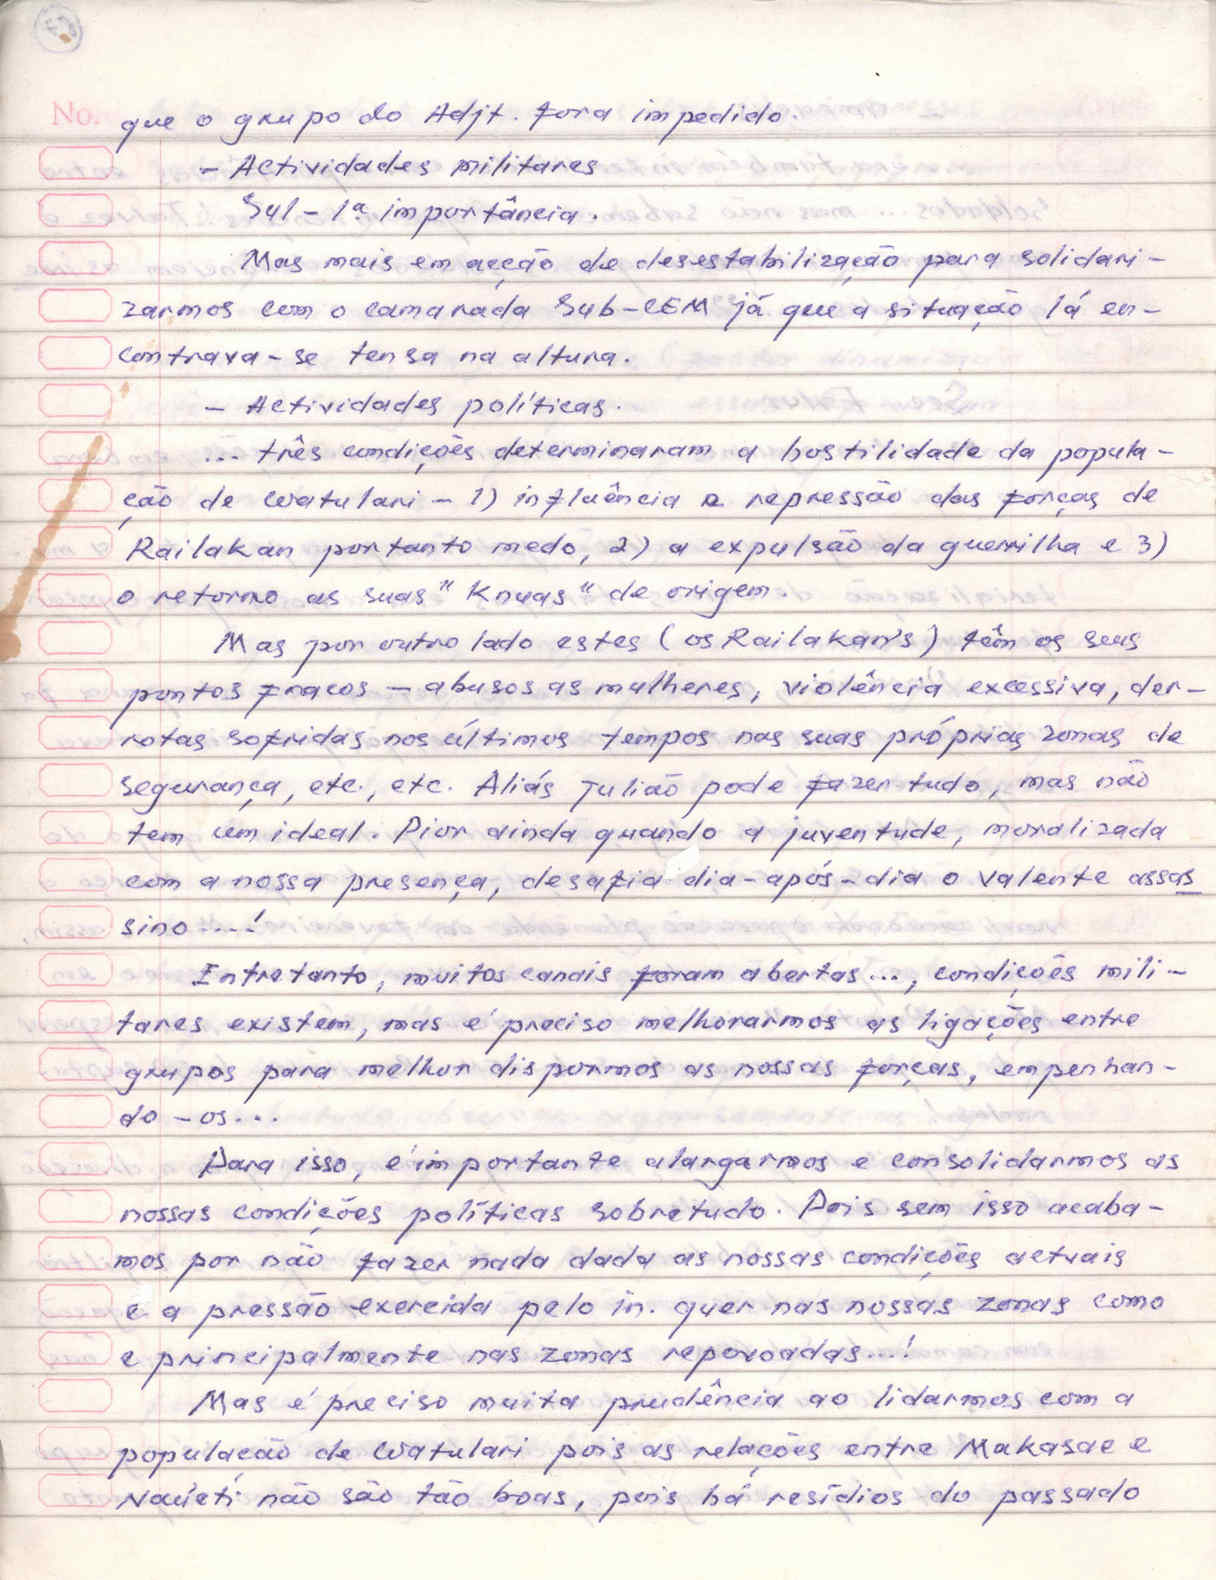 No.
que o grupo do Adjt. fora impedido.
- Actividades militares
Sul - 1ª importância.
Mas mais em acção de desestabilização para solidari-
zarmos com o camarada Sub-CEM já que a situação lá en-
contrava-se tensa na altura.
- Actividades políticas.
... três condições determinaram a hostilidade da popula-
ção de Watulari - 1) influência e repressão das forças de
Railakan portanto medo, 2) a expulsão da guerrilha e 3)
o retorno as suas "Knuas" de origem.
Mas por outro lado estes (os Railakan's) têm os seus
pontos fracos - abusos as mulheres, violência excessiva, der-
rotas sofridas nos últimos tempos nas suas próprias zonas de
segurança, etc., etc. Aliás Julião pode fazer tudo, mas não
tem um ideal. Pior ainda quando a juventude, moralizada
com a nossa presença, desafia dia-após-dia o valente assas
sino ...!
Entretanto, muitos canais foram abertas..., condições mili-
tares existem, mas é preciso melhorarmos as ligações entre
grupos para melhor dispormos as nossas forças, empenhan-
do-os...
Para isso, é importante alargarmos e consolidarmos as
nossas condições políticas sobretudo. Pois sem isso acaba-
mos por não fazer nada dada as nossas condições actuais
e a pressão exercida pelo in. quer nas nossas zonas como
e principalmente nas zonas repovoadas...!
Mas é preciso muita prudência ao lidarmos com a
populacão de Watulari pois as relações entre Makasae e
Naúeti não são tão boas, pois há resídios do passado